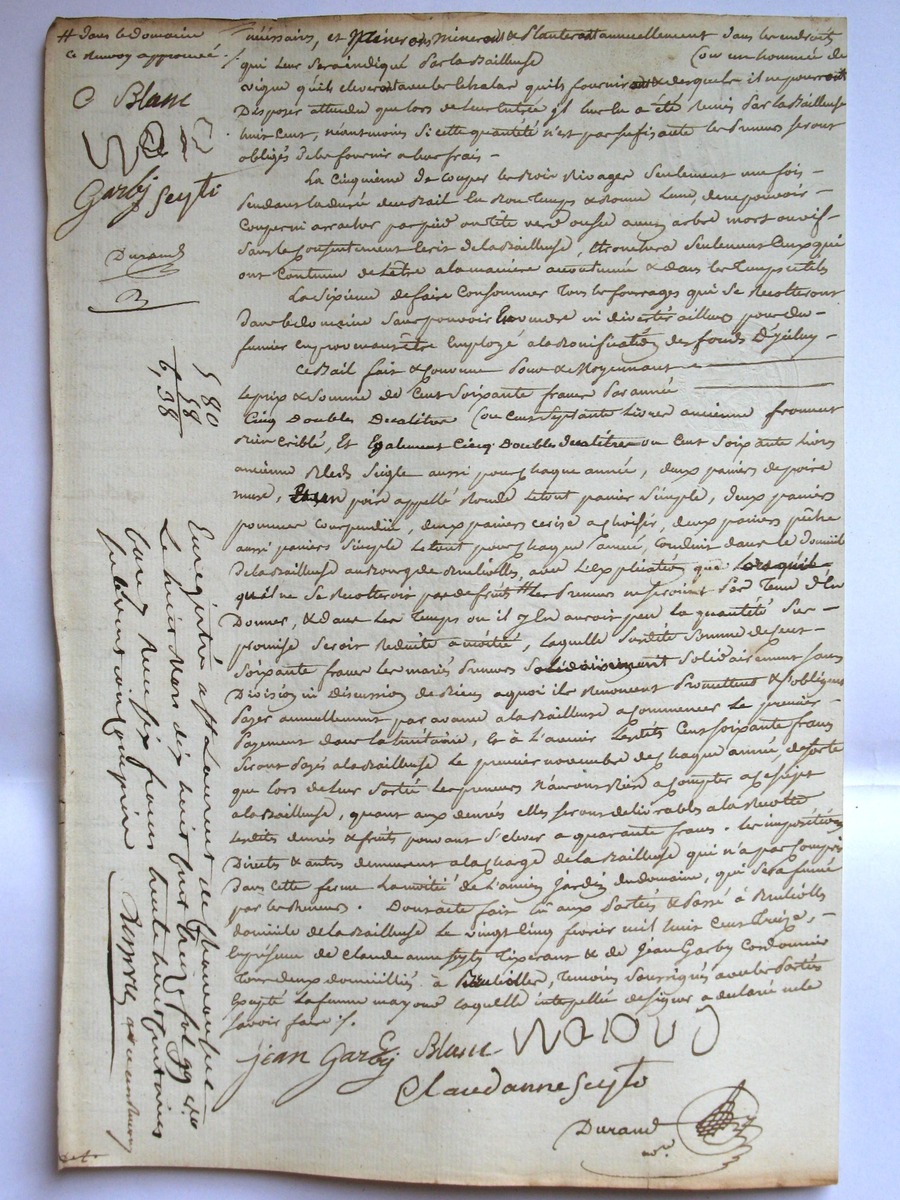 # dans le domaine
ce renvoy approuvé ./.
C Blanc
Garbÿ Seyti
Durand
nécessaires, et Mineront & Planteront annuellement dans les endroits
qui leur sera indiqué par la Bailleuse (ou un hommée de
vigne qu'ils eleveront avec les Echalas qu'ils fourniront & desquels il ne pourront
Disposer attendu que lors de leur entrée jl leur a été remis par la Bailleuse
huit cent, néantmoins si cette quantité n'est pas sufisante les Preneurs seront
obligés de les fournir a leur frais –
La Cinquième de couper les Bois Rivages seulement une fois –
Pendant la durée du Bail En Bon temps & Bonne Lune, de ne pouvoir –
Couper ni arracher par pied ou tête verd ou sec aucun arbre mort ou vif –
Sans le Consentement Ecrit de la Bailleuse, Et tronchera seulement Ceux qui
ont Coutume de L'être a la manière accoutumée & dans les Temps utils
La Sixième de faire Consommer Tous les fourrages qui se Recolteront
Dans le domaine sans pouvoir En vendre ni divertir ailleurs pour du –
fumier en provenant être Employé a la Bonification des fonds D'jcelui –
Ce Bail fait & Convenu Pour & Moyennant
Le prix & somme de Cent Soixante francs Par année
Cinq Doubles Decalitre (ou Cent Septante Livres ancienne froment
Bien criblé, Et Egalement Cinq Doubles decalitres ou Cent Soixante Livres
ancienne Bled Seigle aussi pour chaque année, deux paniers de poire
muse, un poire appellé Ronde le tout panier Simple, deux paniers
pommes Courpendus, deux paniers cerise a choisir, deux paniers pêche
aussi paniers Simple Le tout pour chaque année, Conduit dans le domicile
de la Bailleuse au Bourg de , avec L'explication que Lors qu'il
qu'il ne se Recolteroit pas de fruit # Les Preneurs ne seroient pas Tenu d'En
Donner, & dans Les Temps ou il y En auroit peu la quantité sus –
promise seroit Reduite a moitié, Laquelle susdite Somme de Cent –
Soixante francs les mariés Preneurs solidairement Solidairement sans
Division ni discussion de Biens a quoi ils Renoncent Promettent & s'obligent
Payer annuellement par avance a la Bailleuse a commencer Le premier –
Payement dans la huitaine, Et à L'avenir Lesdits Cent Soixante francs
Seront Payés a la Bailleuse Le premier novembre de chaque année, de sorte
que lors de leur Sortie Les preneurs N'auront Rien a Compter a ce sujet
a la Bailleuse, quant aux denrés elles seront delivrables a la Recolte
Lesdits denrés & fruits pouvant s'elever a quarante francs. Les impositions
Directs & autres demeurent a la charge de la Bailleuse qui n'a pas Compris
Dans cette ferme La moitié de L'ancien Jardin du domaine, qui sera fumé
par les Preneurs. Dont acte fait Lû aux Parties & Passé à
domicile de la Bailleuse Le vingt Cinq fevrier mil huit Cent treize, –
En présence de Claude anne Seyti Tixerant & de Jean Garby Cordonnier
Tous deux domiciliés à , Temoins Soussignés avec les Parties
Excepté La femme mayoud laquelle interpellée de signer a declaré ne le
savoir faire ./.
jean Garbÿ C Blanc
Claudanne Seyti
Durand
no.re
5, 80
58
6, 38
Enregistré a St Laurent de Chamousset
Le huit Mars dix huit Cent Treize fol 99
Reçu six francs trente huit centimes